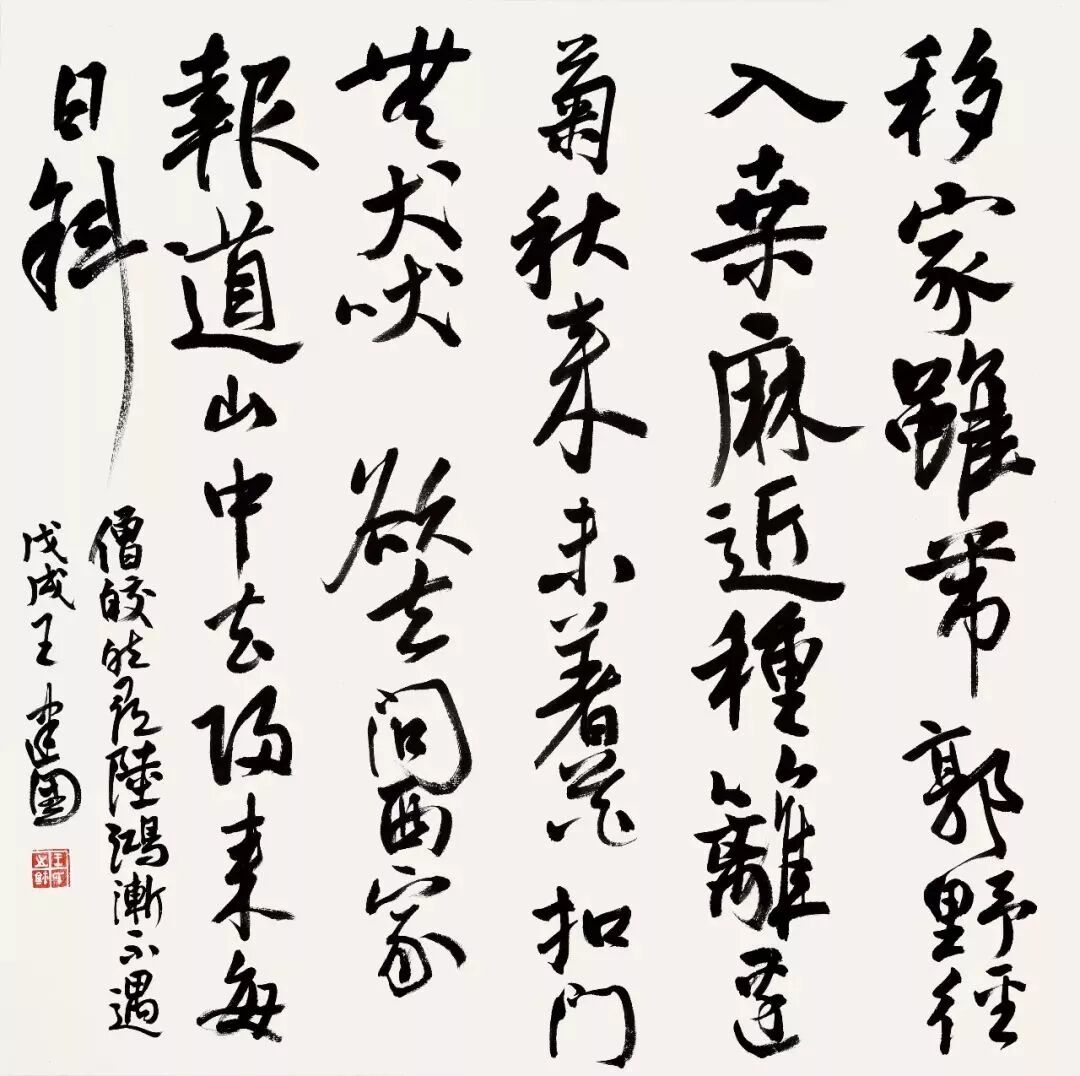 移家雖帶郭野徑
入桑麻近種籬邊
菊秋來未著花扣門
無犬吠欲去問西家
報道山中去歸來每
日斜
僧皎然尋陸鴻漸不遇
戊戌王建國